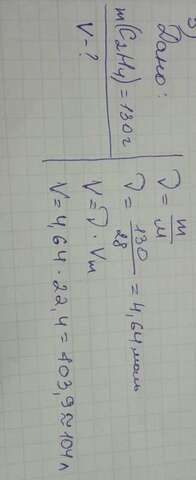 3)
Дано:
m(C₂H₄) = 130г
V - ?
ν = m/M
ν = 130/28 = 4,64 моль
V = ν · Vm
V = 4,64 · 22,4 = 103,9 ≈ 104 л